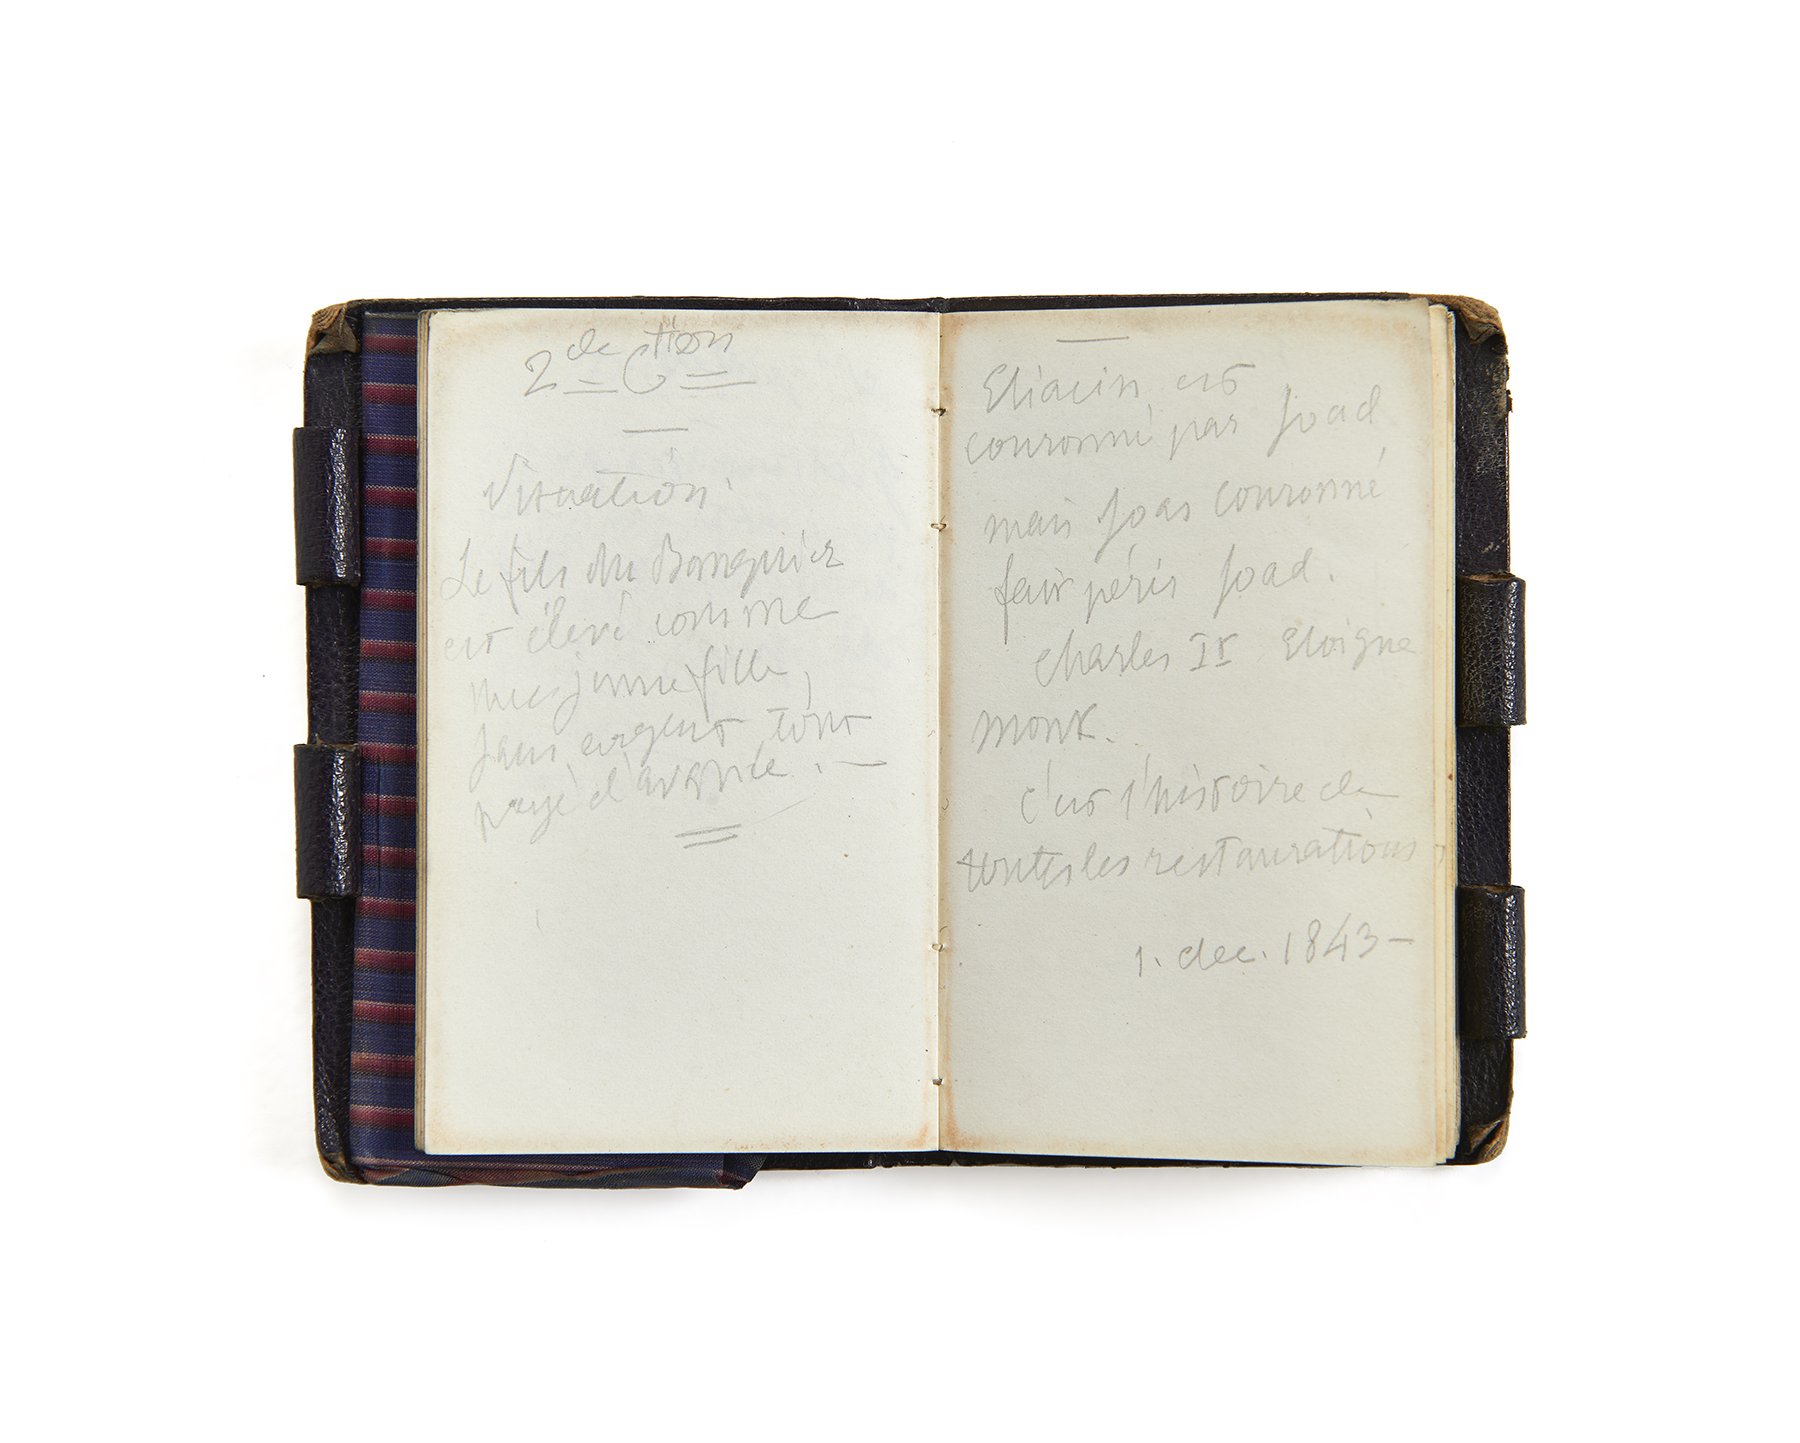 2de Ction
Situation.
Le fils du Banquier
est élevé comme
une jeune fille,
sans argent tout
payé d'avance. —
Eliacin est
couronné par Joad
mais Joas couronné
fait périr Joad.
Charles II Eloigne
monk.
c'est l'histoire de
toutes les restaurations
1. dec. 1843 —